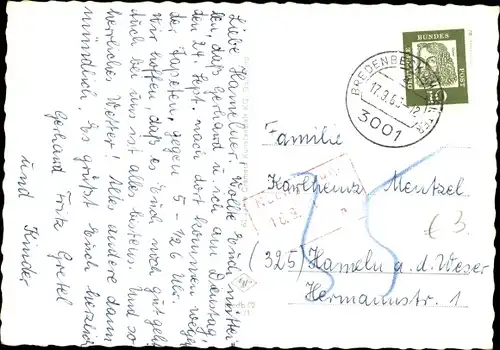 Liebe Hamelner. Wollte Euch mittei-
len, daß Gerhard u ich am Dienstag,
den 24. Sept. nach dort kommen wegen
der Tapeten, gegen 5 - ½6 Uhr.
Wir hoffen, daß es Euch noch gut geht.
Auch bei uns ist alles bestens. Und so
herrliches Wetter! Alles andere dann
mündlich. Es grüßt Euch herzlich
Gerhard Fritz Gretel
und Kinder
DEUTSCHE BUNDESPOST
BREDENBECK
17.9.63-12
3001
Familie
Karlheinz Mentzel
(325) Hameln a. d. Weser
Hermannstr. 1
€ 3.